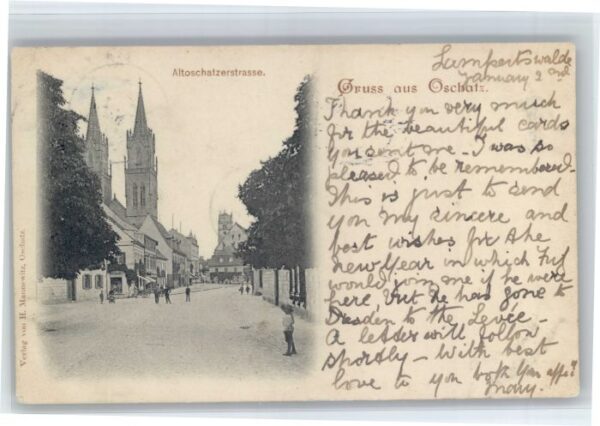 Altoschatzerstrasse.
Gruss aus Oschatz.
Verlag von H. Mannewitz, Oschatz.
Lampertswalde
January 2nd
Thank you very much
for the beautiful cards
you sent me. I was so
pleased to be remembered.
This is just to send
you my sincere and
best wishes for the
New Year in which
would join me if he were
here but he has gone to
Dresden to the Levée.
A letter will follow
shortly - With best
love to you both your affec
Mary.